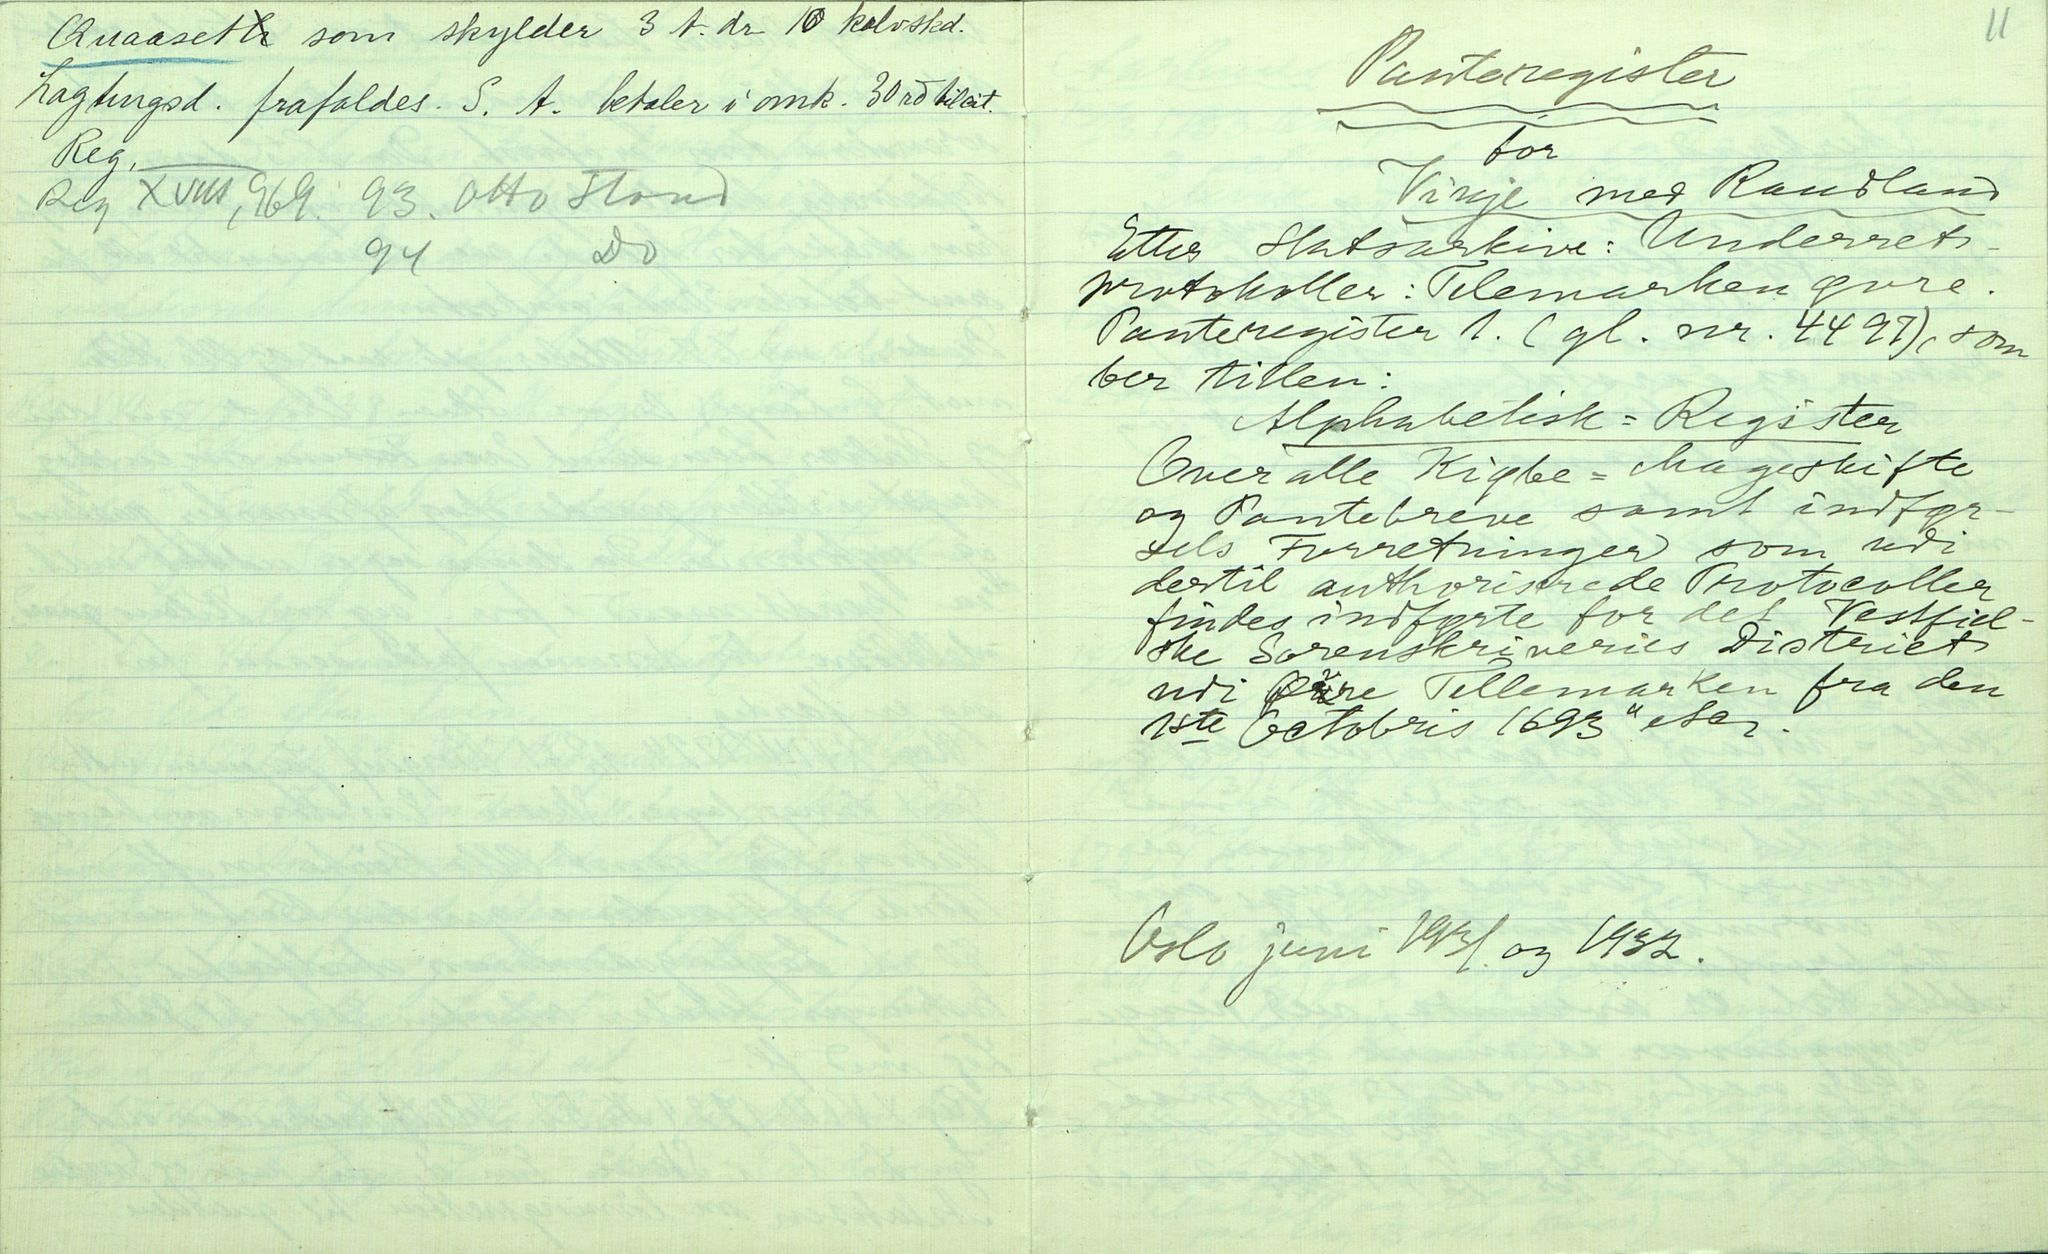 Quaaseth som skylder 3 t. dr 10 kalvskd.
Lagtingsd. frafaldes. S. A. betaler i omk. 30 rd til cit.
Reg.
Reg XVIII, 969. 93. Otto Stoud
94 Do
11
Panteregister
for
Vinje med Raudland
Etter Statsarkive: Underrets-
protokoller: Telemarken øvre.
Panteregister 1. (gl. nr. 4497), som
ber tillen:
Alphabetisk = Register
Over alle Kiøbe = Mageskifte
og Pantebreve samt indfør-
sels Forretninger som udi
dertil authoriserede Protocoller
findes indførte for det Vestfiel-
ske Sorenskriveries District
udi Øvre Tellemarken fra den
1ste Octobris 1693" etc.
Oslo juni 1931. og 1932.